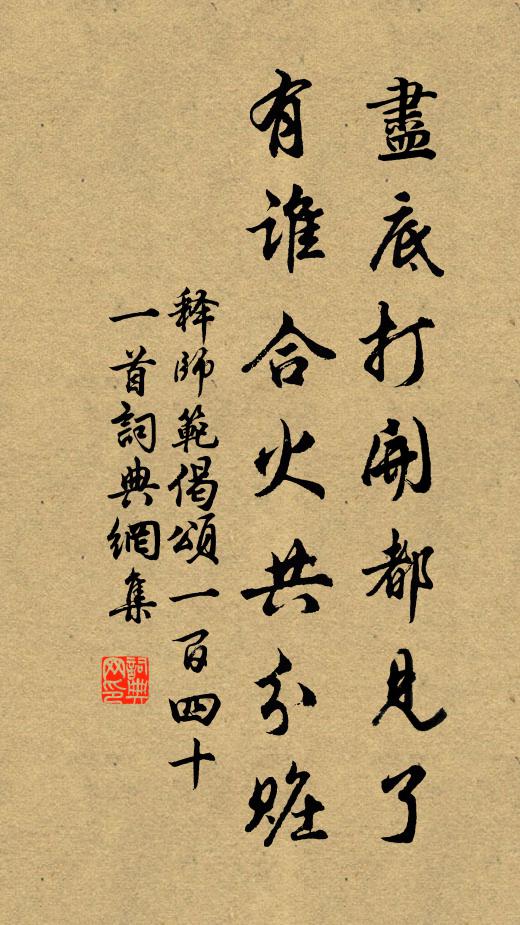 盡底打開都見了
有誰合火共分賍
释師範偈頌一百四十
一首詞典網集
詞典
网印